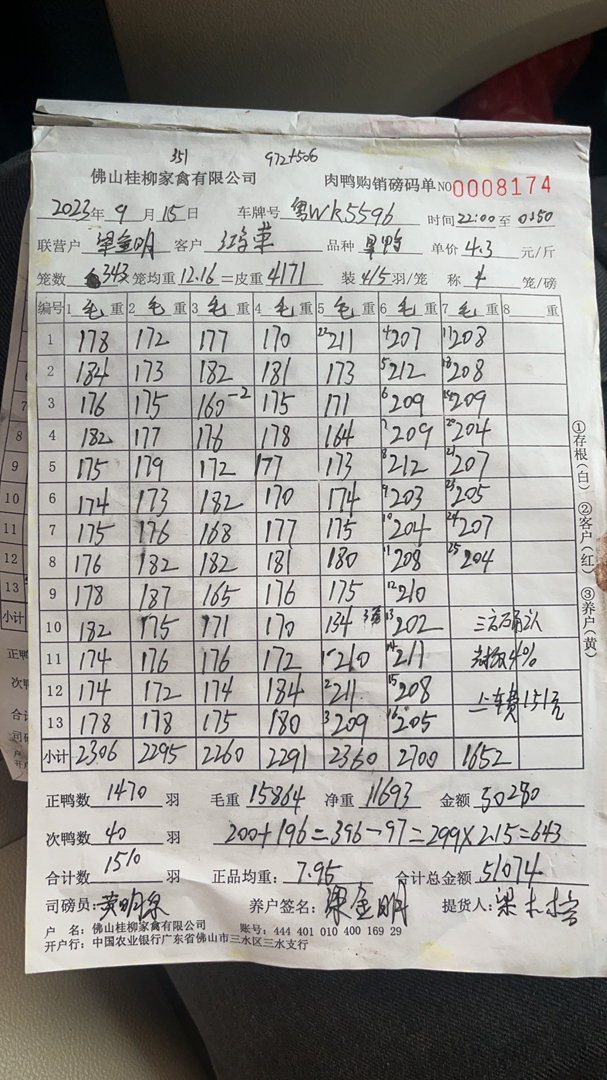 351
972+506
佛山桂柳家禽有限公司 肉鸭购销磅码单 NO0008174
2023年9月15日 车牌号 粤WK5596 时间 22:00 至 0:50
联营户 梁金明 客户 品种 单价 4.3 元/斤
笼数 343 笼均重 12.16 = 皮重 4171 装 4/5 羽/笼 称 4 笼/磅
编号 1 毛 重 2 毛 重 3 毛 重 4 毛 重 5 毛 重 6 毛 重 7 毛 重 8 重
1 178 172 177 170 22 211 4 207 17 208
2 184 173 182 181 173 5 212 18 208
3 176 175 160-2 175 171 6 209 19 209
4 182 177 176 178 164 7 209 20 204
5 175 179 172 177 173 8 212 21 207
6 174 173 182 170 174 9 203 23 205
7 175 176 168 177 175 10 204 24 207
8 176 182 182 181 180 11 208 25 204
9 178 187 165 176 175 12 210
10 182 175 171 170 134 3笼 13 202 三方确认
11 174 176 176 172 1 210 14 217 4%
12 174 172 174 184 2 211 15 208 上车费151元
13 178 178 175 180 3 209 16 205
小计 2306 2295 2260 2291 2360 2700 1652
正鸭数 1470 羽 毛重 15864 净重 11693 金额 50280
次鸭数 40 羽 200+196=396-97=299×2.15=643
合计数 1510 羽 正品均重: 7.95 合计总金额 51074
司磅员: 养户签名: 梁金明 提货人: 梁
户 名: 佛山桂柳家禽有限公司 账号: 444 401 010 400 169 29
开户行: 中国农业银行广东省佛山市三水区三水支行
①存根(白) ②客户(红) ③养户(黄)
7
8
9
10
11
12
13
小计
正鸭
次鸭
合计
司磅
户
开户